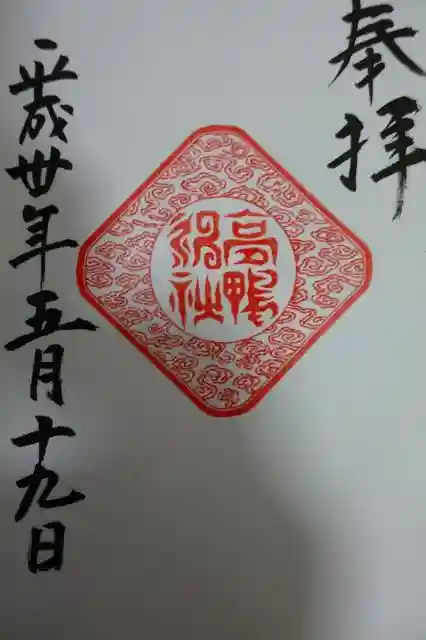 奉拝
高鴨
神社
平成丗年五月十九日